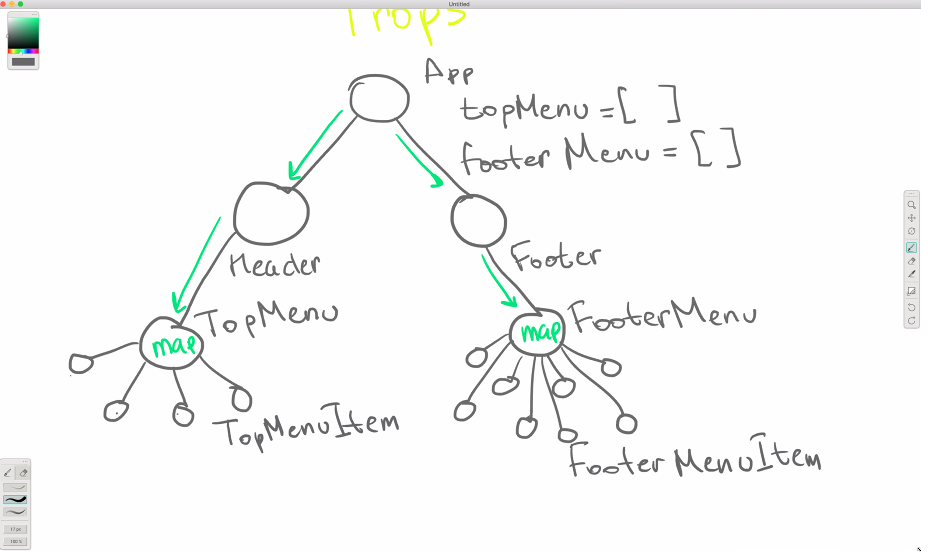 Untitled
Props
App
topMenu = [ ]
footerMenu = [ ]
Header
Footer
TopMenu
FooterMenu
map
map
TopMenuItem
FooterMenuItem
17 px
100%